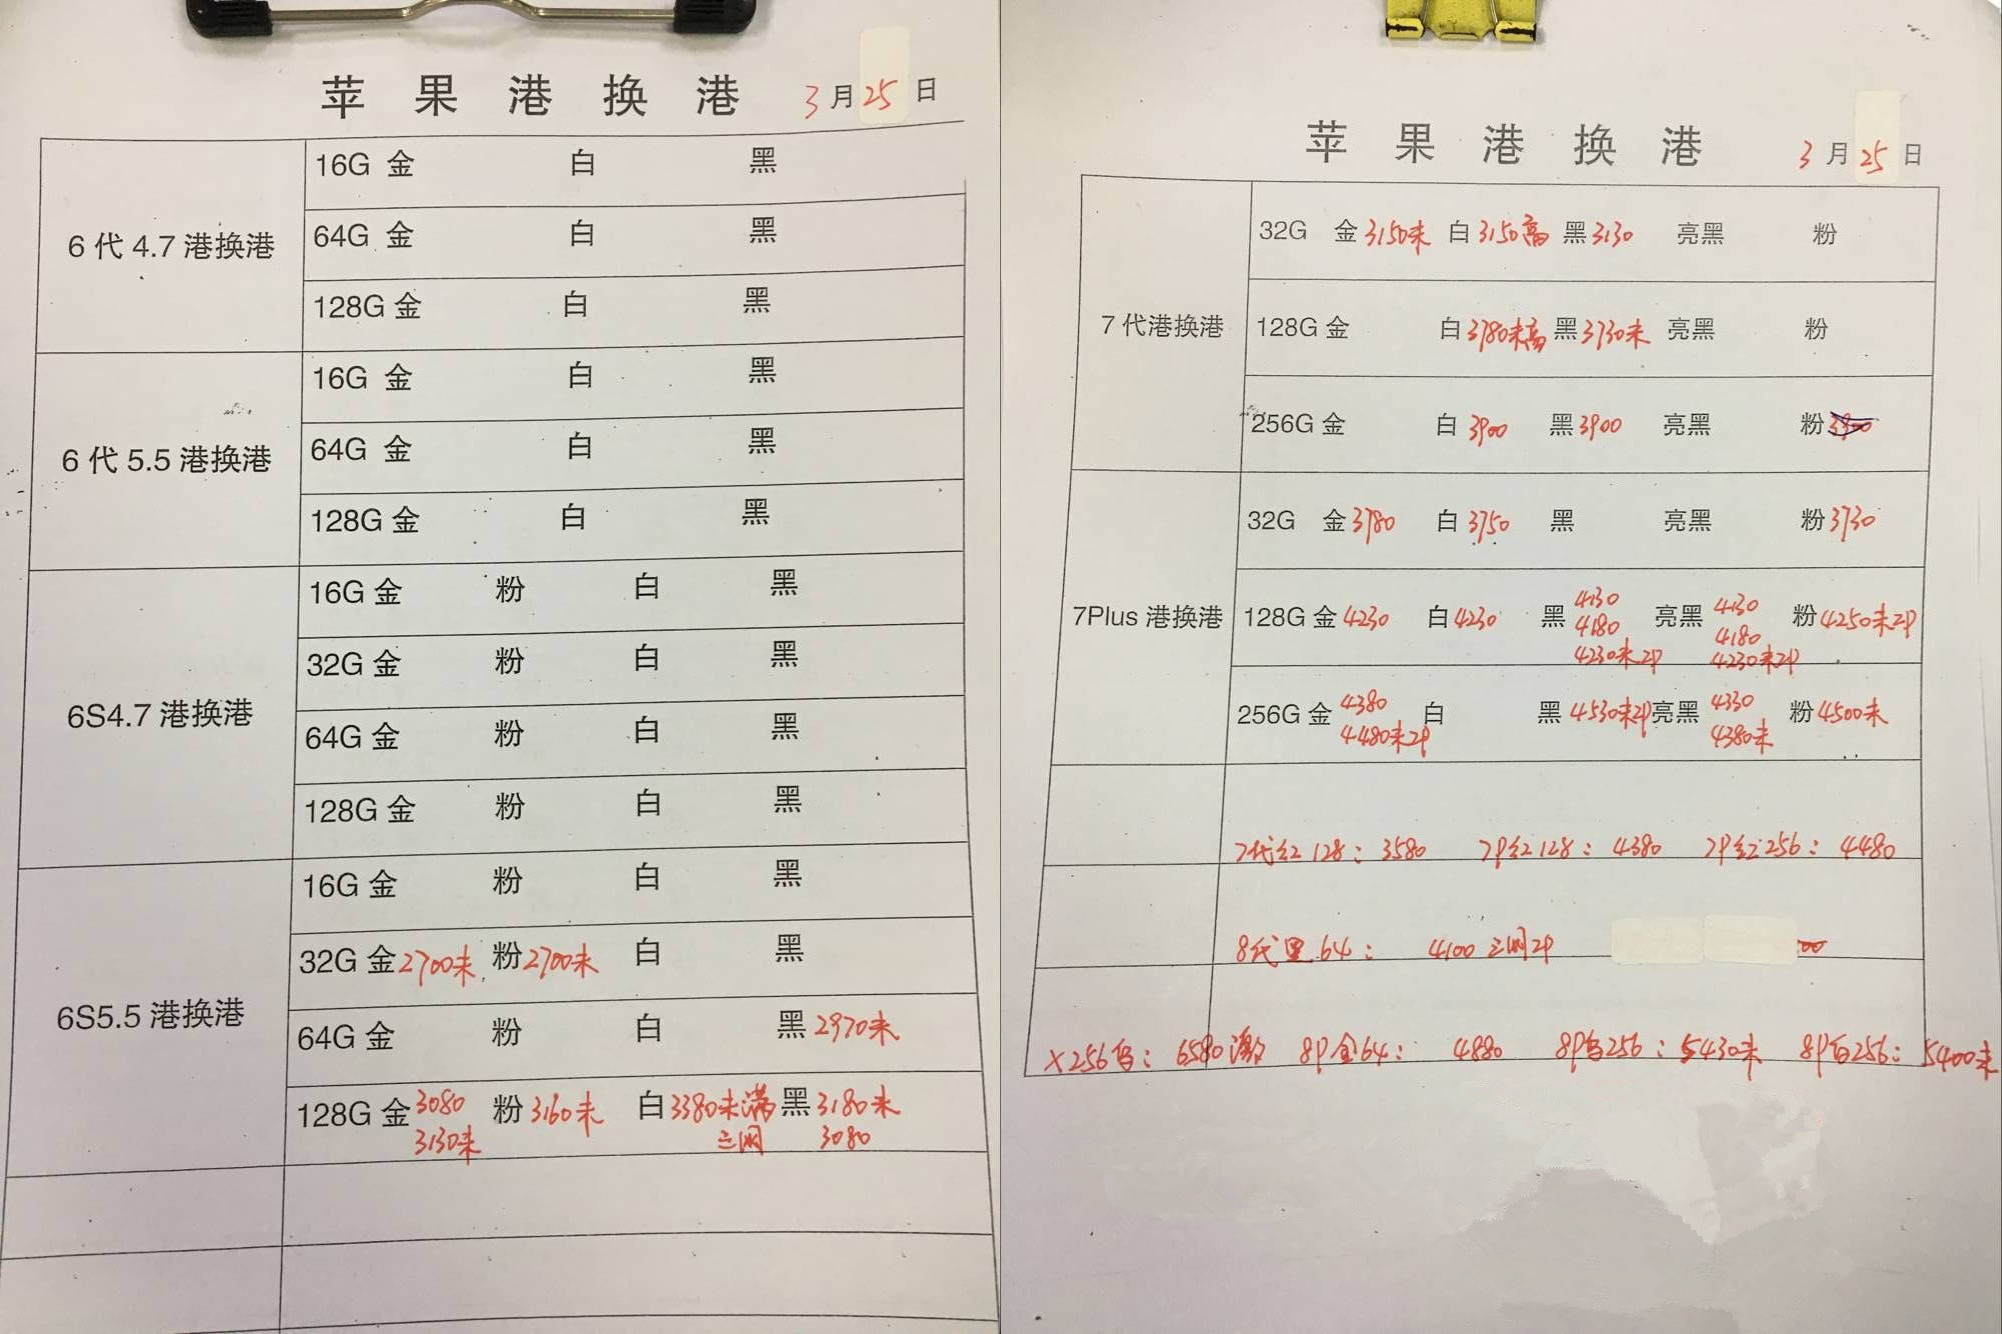 苹果港换港 3月25日
6代4.7港换港
16G 金 白 黑
64G 金 白 黑
128G 金 白 黑
6代5.5港换港
16G 金 白 黑
64G 金 白 黑
128G 金 白 黑
6S4.7港换港
16G 金 粉 白 黑
32G 金 粉 白 黑
64G 金 粉 白 黑
128G 金 粉 白 黑
6S5.5港换港
16G 金 粉 白 黑
32G 金 2700未 粉 2700未 白 黑
64G 金 粉 白 黑 2970未
128G 金 3080 粉 3160未 白 3380未满 黑 3180未
3130未 三网 3080
苹果港换港 3月25日
7代港换港
32G 金 3150未 白 3150高 黑 3130 亮黑 粉
128G 金 白 3780未高 黑 3730未 亮黑 粉
256G 金 白 3900 黑 3900 亮黑 粉
7Plus港换港
32G 金 3780 白 3750 黑 亮黑 粉 3730
128G 金 4230 白 4230 黑 4130 亮黑 4130 粉 4250未2P
4180 4180
4230未2P 4230未2P
256G 金 4380 白 黑 4530未2P 亮黑 4330 粉 4500未
4480未2P 4380未
7代红128：3580 7P红128：4380 7P红256：4480
8代黑64： 4100三网2P
X256白：6580激 8P金64： 4880 8P白256：5430未 8P白256：5400未